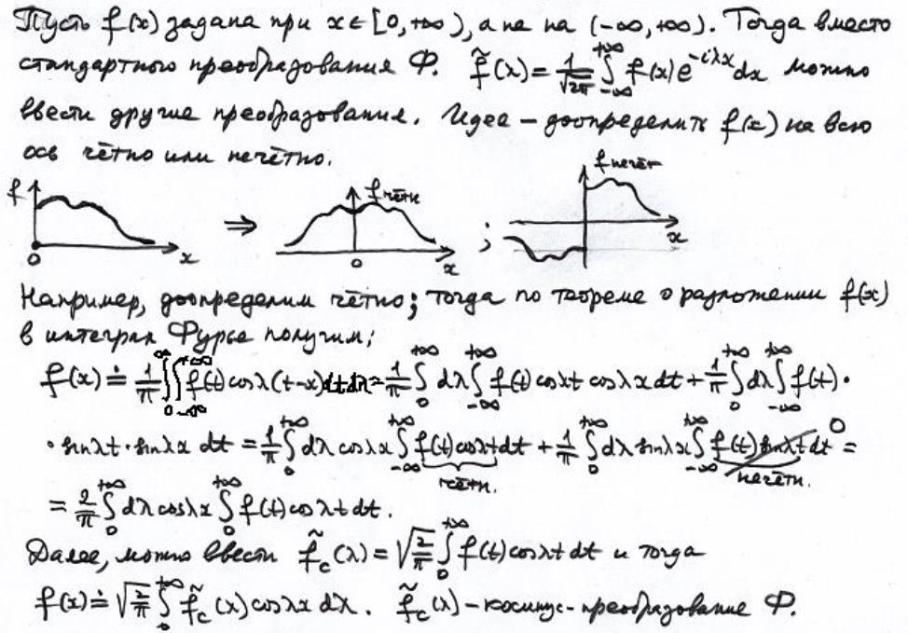 Пусть f(x) задана при x ∈ [0,+∞), а не на (-∞,+∞). Тогда вместо
стандартного преобразования Ф. f̃(λ) = 1/√2π ∫_{-∞}^{+∞} f(x)e^{-iλx}dx можно
ввести другие преобразования. Идея – доопределить f(x) на всю
ось чётно или нечётно.
f 0 x ⇒ f чётн 0 x ; f нечёт x
Например, доопределим чётно; тогда по теореме о разложении f(x)
в интеграл Фурье получим:
f(x) ≐ 1/π ∫_0^∞ ∫_{-∞}^{+∞} f(t) cos λ(t-x)dtdλ = 1/π ∫_0^{+∞} dλ ∫_{-∞}^{+∞} f(t) cos λt cos λx dt + 1/π ∫_0^{+∞} dλ ∫_{-∞}^{+∞} f(t) ·
· sin λt · sin λx dt = 1/π ∫_0^{+∞} dλ cos λx ∫_{-∞}^{+∞} f(t) cos λt dt + 1/π ∫_0^{+∞} dλ sin λx ∫_{-∞}^{+∞} f(t) sin λt dt 0 =
чётн. нечётн.
= 2/π ∫_0^{+∞} dλ cos λx ∫_0^{+∞} f(t) cos λt dt.
Далее, можно ввести f̃_c(λ) = √(2/π) ∫_0^{+∞} f(t) cos λt dt и тогда
f(x) ≐ √(2/π) ∫_0^{+∞} f̃_c(λ) cos λx dλ. f̃_c(λ) – косинус-преобразование Ф.